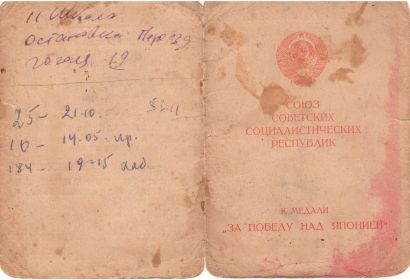 11 Школа
остановка Переезд
гоголя 69
25 – 21.10.
16 – 14.05. пр.
184 – 19-15 каб.
СОЮЗ
СОВЕТСКИХ
СОЦИАЛИСТИЧЕСКИХ
РЕСПУБЛИК
К МЕДАЛИ
„ЗА ПОБЕДУ НАД ЯПОНИЕЙ"